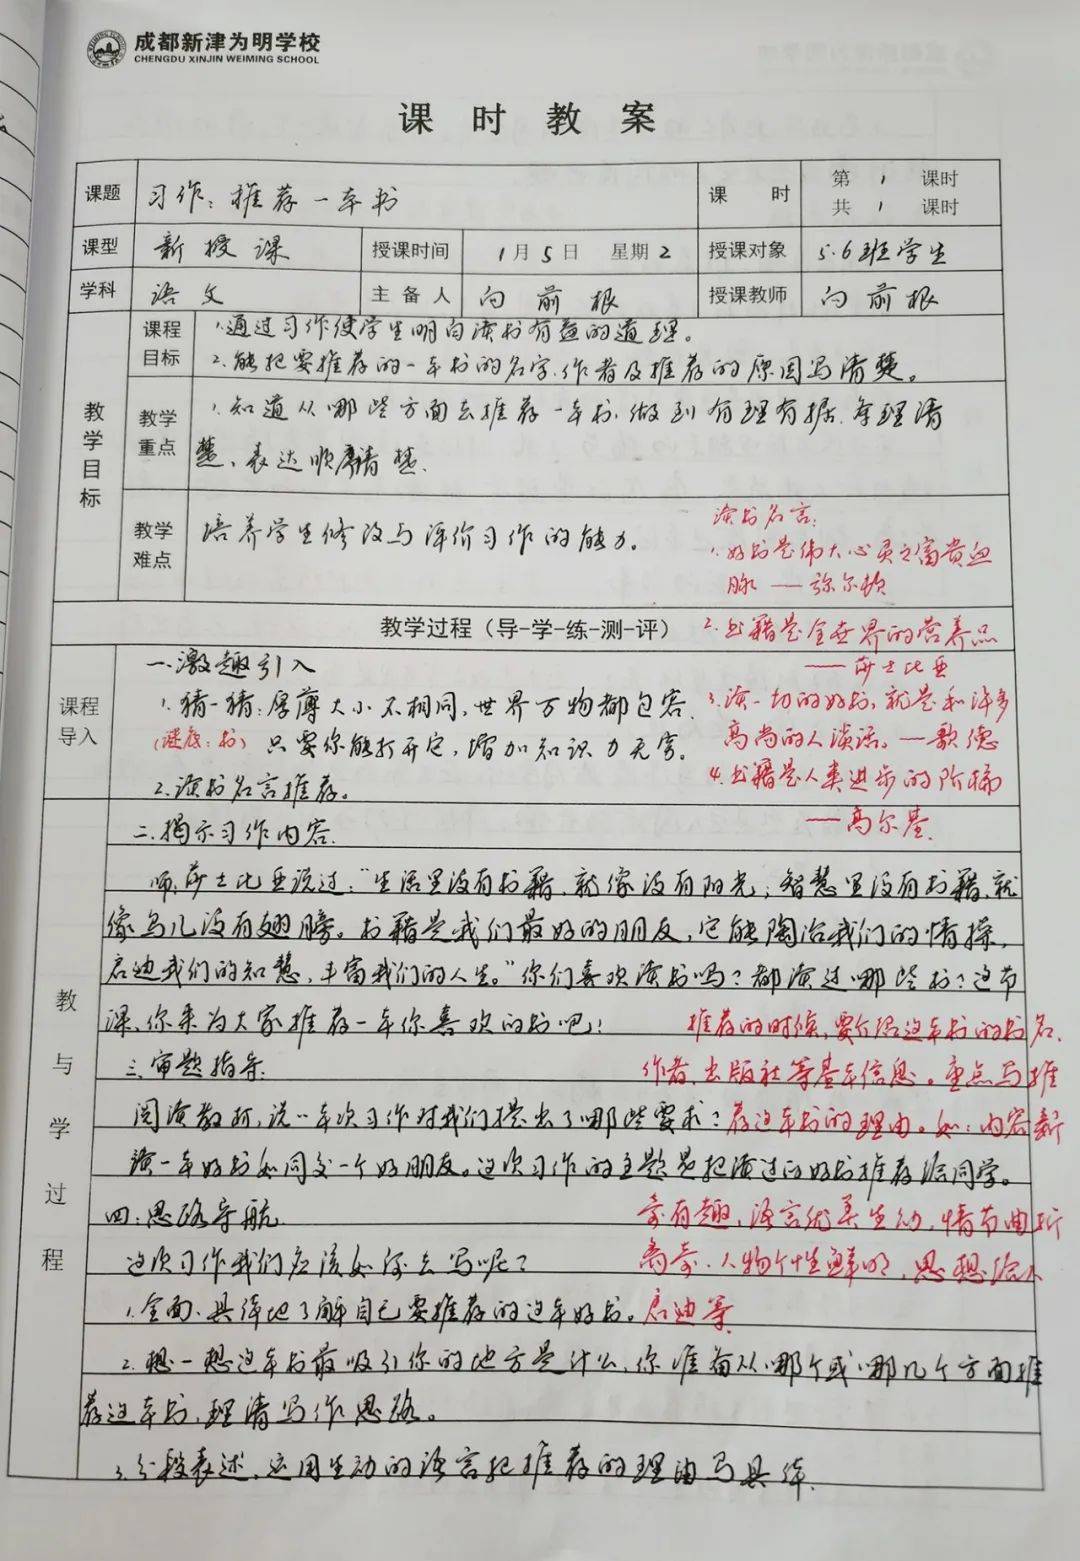 成都新津为明学校
CHENGDU XINJIN WEIMING SCHOOL
课时教案
课题 习作：推荐一本书 课时 第1课时
共1课时
课型 新授课 授课时间 1月5日 星期2 授课对象 5.6班学生
学科 语文 主备人 向前根 授课教师 向前根
教学目标
课程目标
1.通过习作使学生明白读书有益的道理。
2.能把要推荐的一本书的名字、作者及推荐的原因写清楚。
教学重点
1.知道从哪些方面去推荐一本书,做到有理有据、条理清
楚、表达顺序清楚.
教学难点
培养学生修改与评价习作的能力.
读书名言:
1.好书是伟大心灵之富贵血
脉——弥尔顿
教学过程（导-学-练-测-评）
2.书籍是全世界的营养品
——莎士比亚
3.读一切的好书,就是和许多
高尚的人谈话。—歌德
4.书籍是人类进步的阶梯
——高尔基.
课程导入
一.激趣引入
1.猜一猜:厚薄大小不相同,世界万物都包容.
(谜底:书) 只要你能打开它,增加知识力无穷.
2.读书名言推荐。
教与学过程
二.揭示习作内容.
师:莎士比亚说过:“生活里没有书籍,就像没有阳光;智慧里没有书籍,就
像鸟儿没有翅膀。书籍是我们最好的朋友,它能陶冶我们的情操,
启迪我们的知慧,丰富我们的人生。”你们喜欢读书吗?都读过哪些书?这节
课,你来为大家推荐一本你喜欢的书吧! 推荐的时候,要介绍这本书的书名.
三.审题指导. 作者、出版社等基本信息。重点写推
阅读教材,说一本次习作对我们提出了哪些要求? 荐这本书的理由。如:内容新
读一本好书如同交一个好朋友。这次习作的主题是把读过的好书推荐给同学。
四:思路导航. 奇有趣,语言优美生动,情节曲折
这次习作我们应该如何去写呢? 离奇、人物个性鲜明、思想给人
1.全面、具体地了解自己要推荐的这本好书。 启迪等
2.想一想这本书最吸引你的地方是什么,你准备从哪个或哪几个方面推
荐这本书,理清写作思路。
3.分段表述,运用生动的语言把推荐的理由写具体.